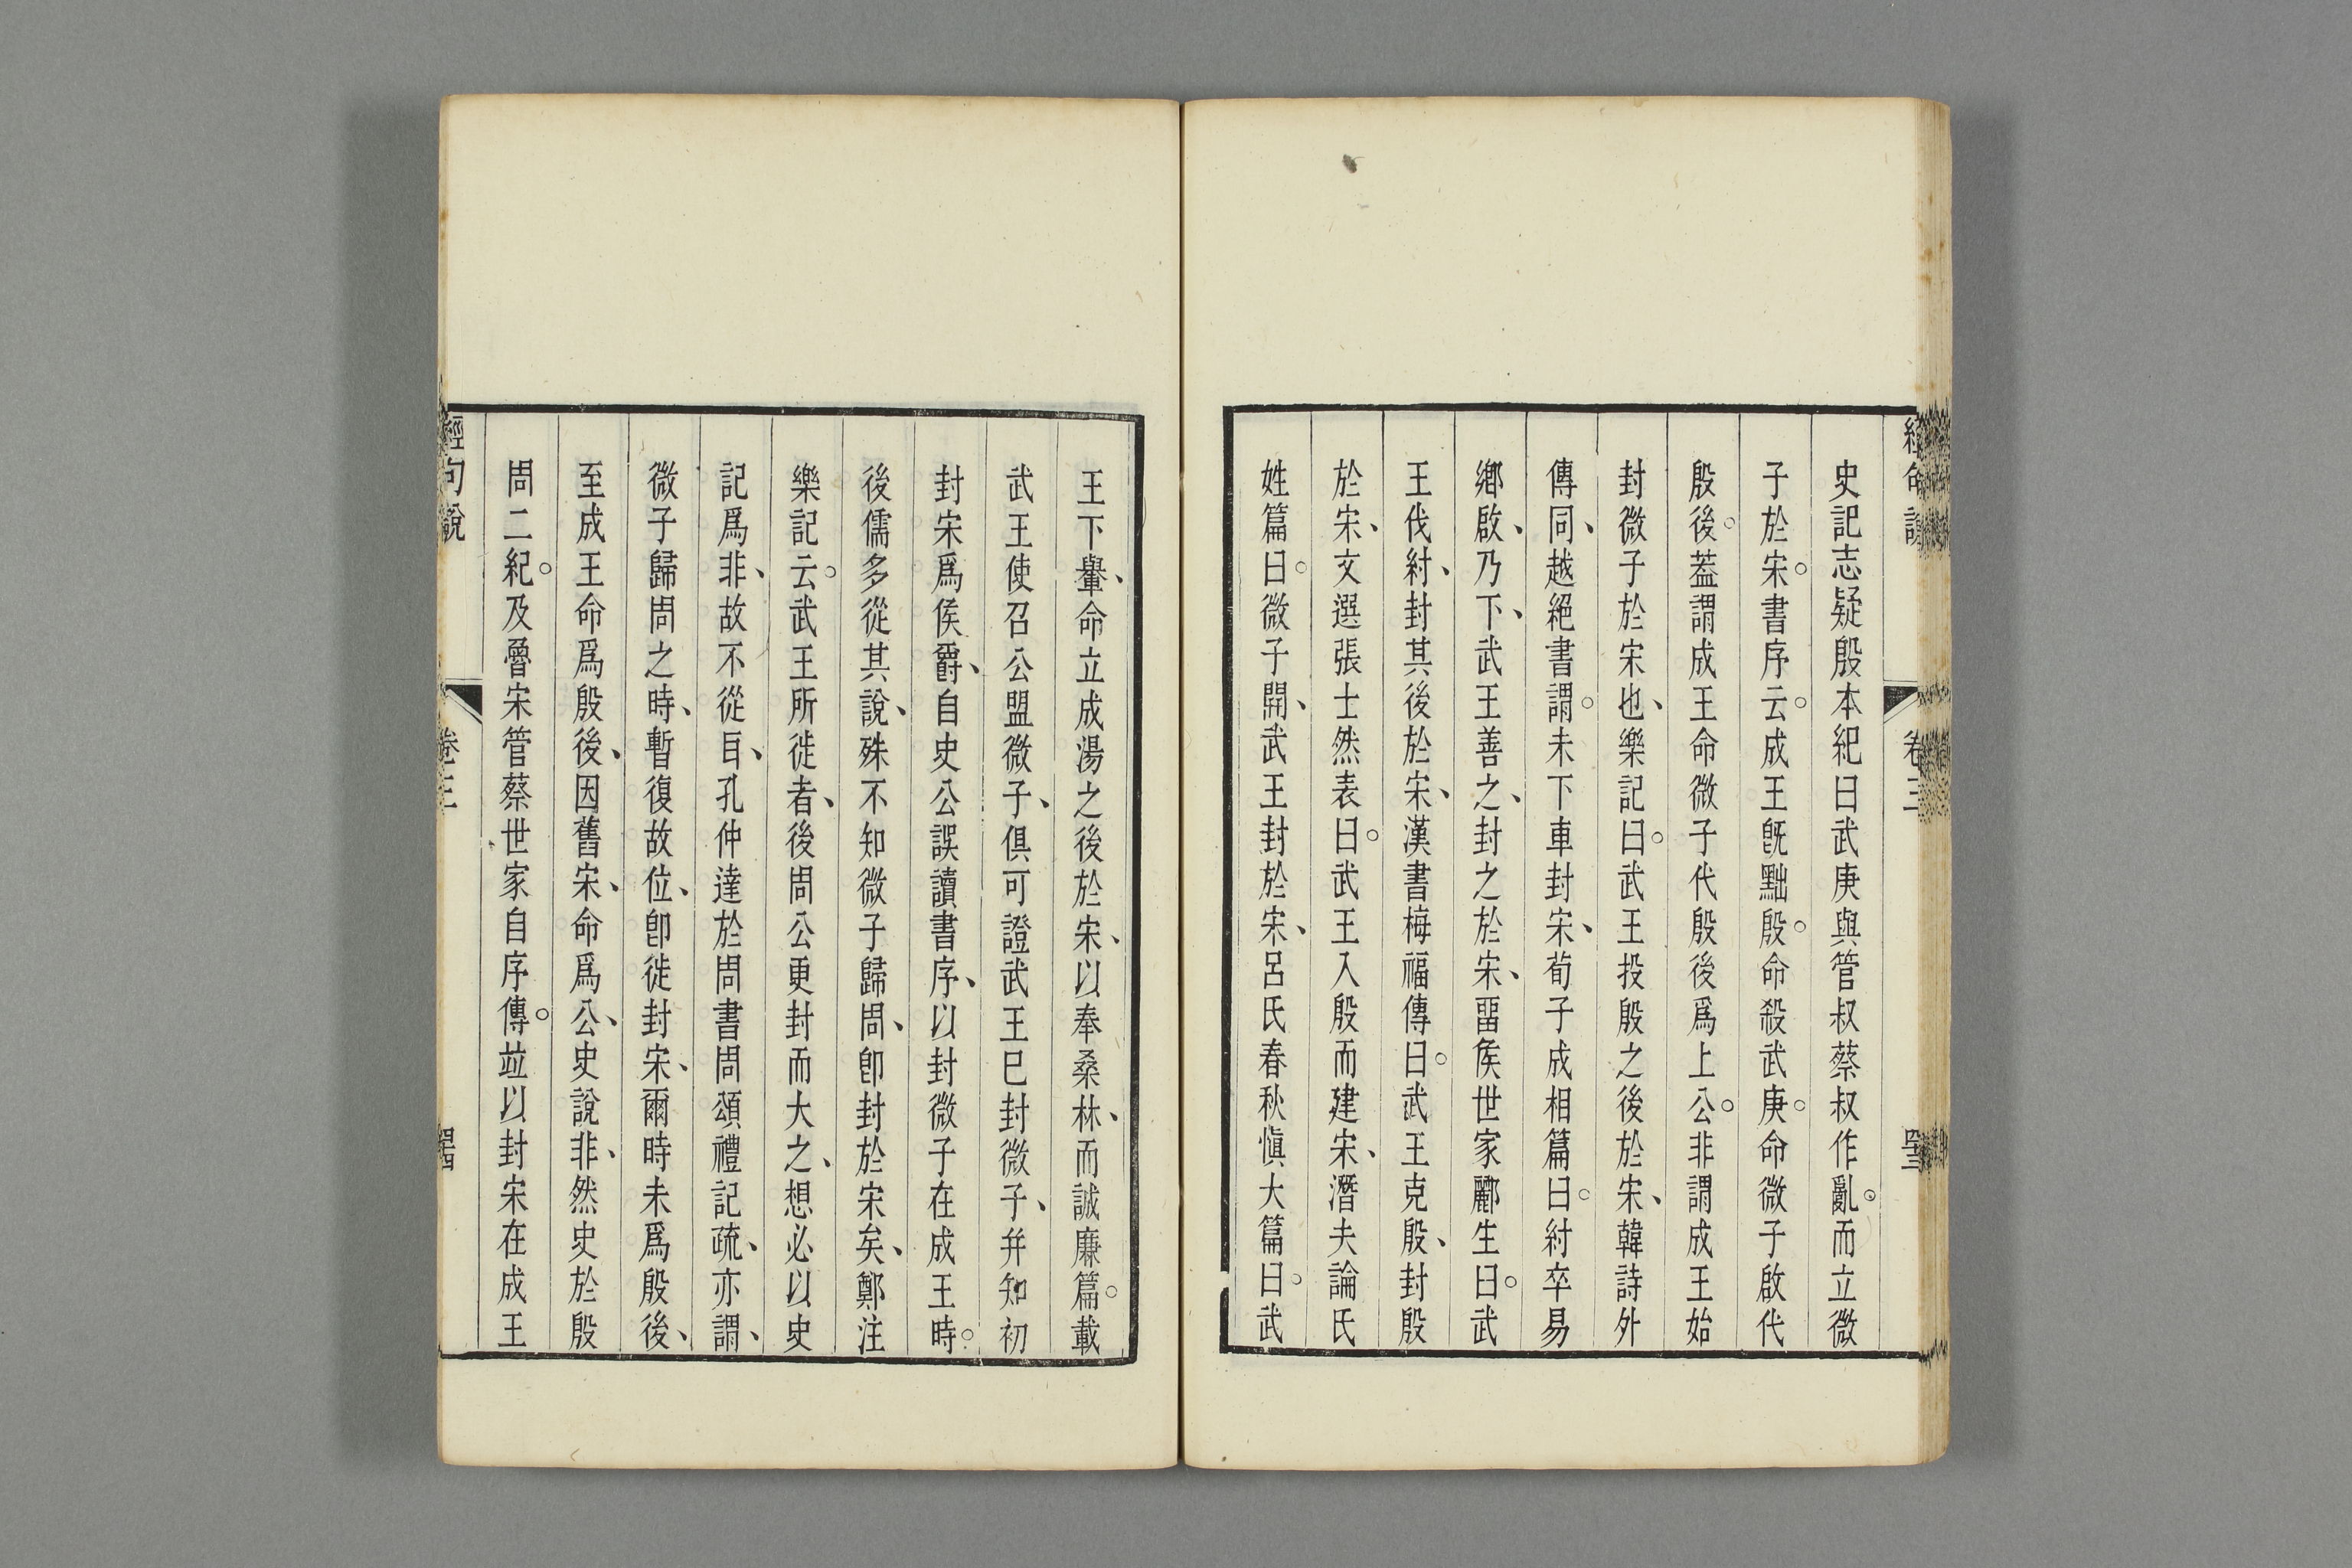 經句說
卷三
史記志疑殷本紀曰武庚與管叔蔡叔作亂。而立微
子於宋。書序云。成王旣黜殷。命殺武庚。命微子啟代
殷後。葢謂成王命微子代殷後爲上公。非謂成王始
封微子於宋也、樂記曰。武王投殷之後於宋、韓詩外
傳同、越絕書謂。未下車封宋、荀子成相篇曰。紂卒易
鄉啟、乃下、武王善之、封之於宋、畱矦世家酈生曰。武
王伐紂、封其後於宋、漢書梅福傳曰。武王克殷、封殷
於宋、文選張士然表曰。武王入殷而建宋、潛夫論氏
姓篇曰。微子開、武王封於宋、呂氏春秋愼大篇曰。武
王下轝、命立成湯之後於宋、以奉桑林、而誠廉篇。載
武王使召公盟微子、俱可證武王已封微子、幷知初
封宋爲侯爵、自史公誤讀書序、以封微子在成王時。
後儒多從其說、殊不知微子歸周、卽封於宋矣、鄭注
樂記云。武王所徙者、後周公更封而大之、想必以史
記爲非、故不從耳、孔仲達於周書周頌禮記疏、亦謂、
微子歸周之時、暫復故位、卽徙封宋、爾時未爲殷後、
至成王命爲殷後、因舊宋、命爲公、史說非、然史於殷
周二紀。及魯宋管蔡世家自序傳。竝以封宋在成王
經句說
卷三